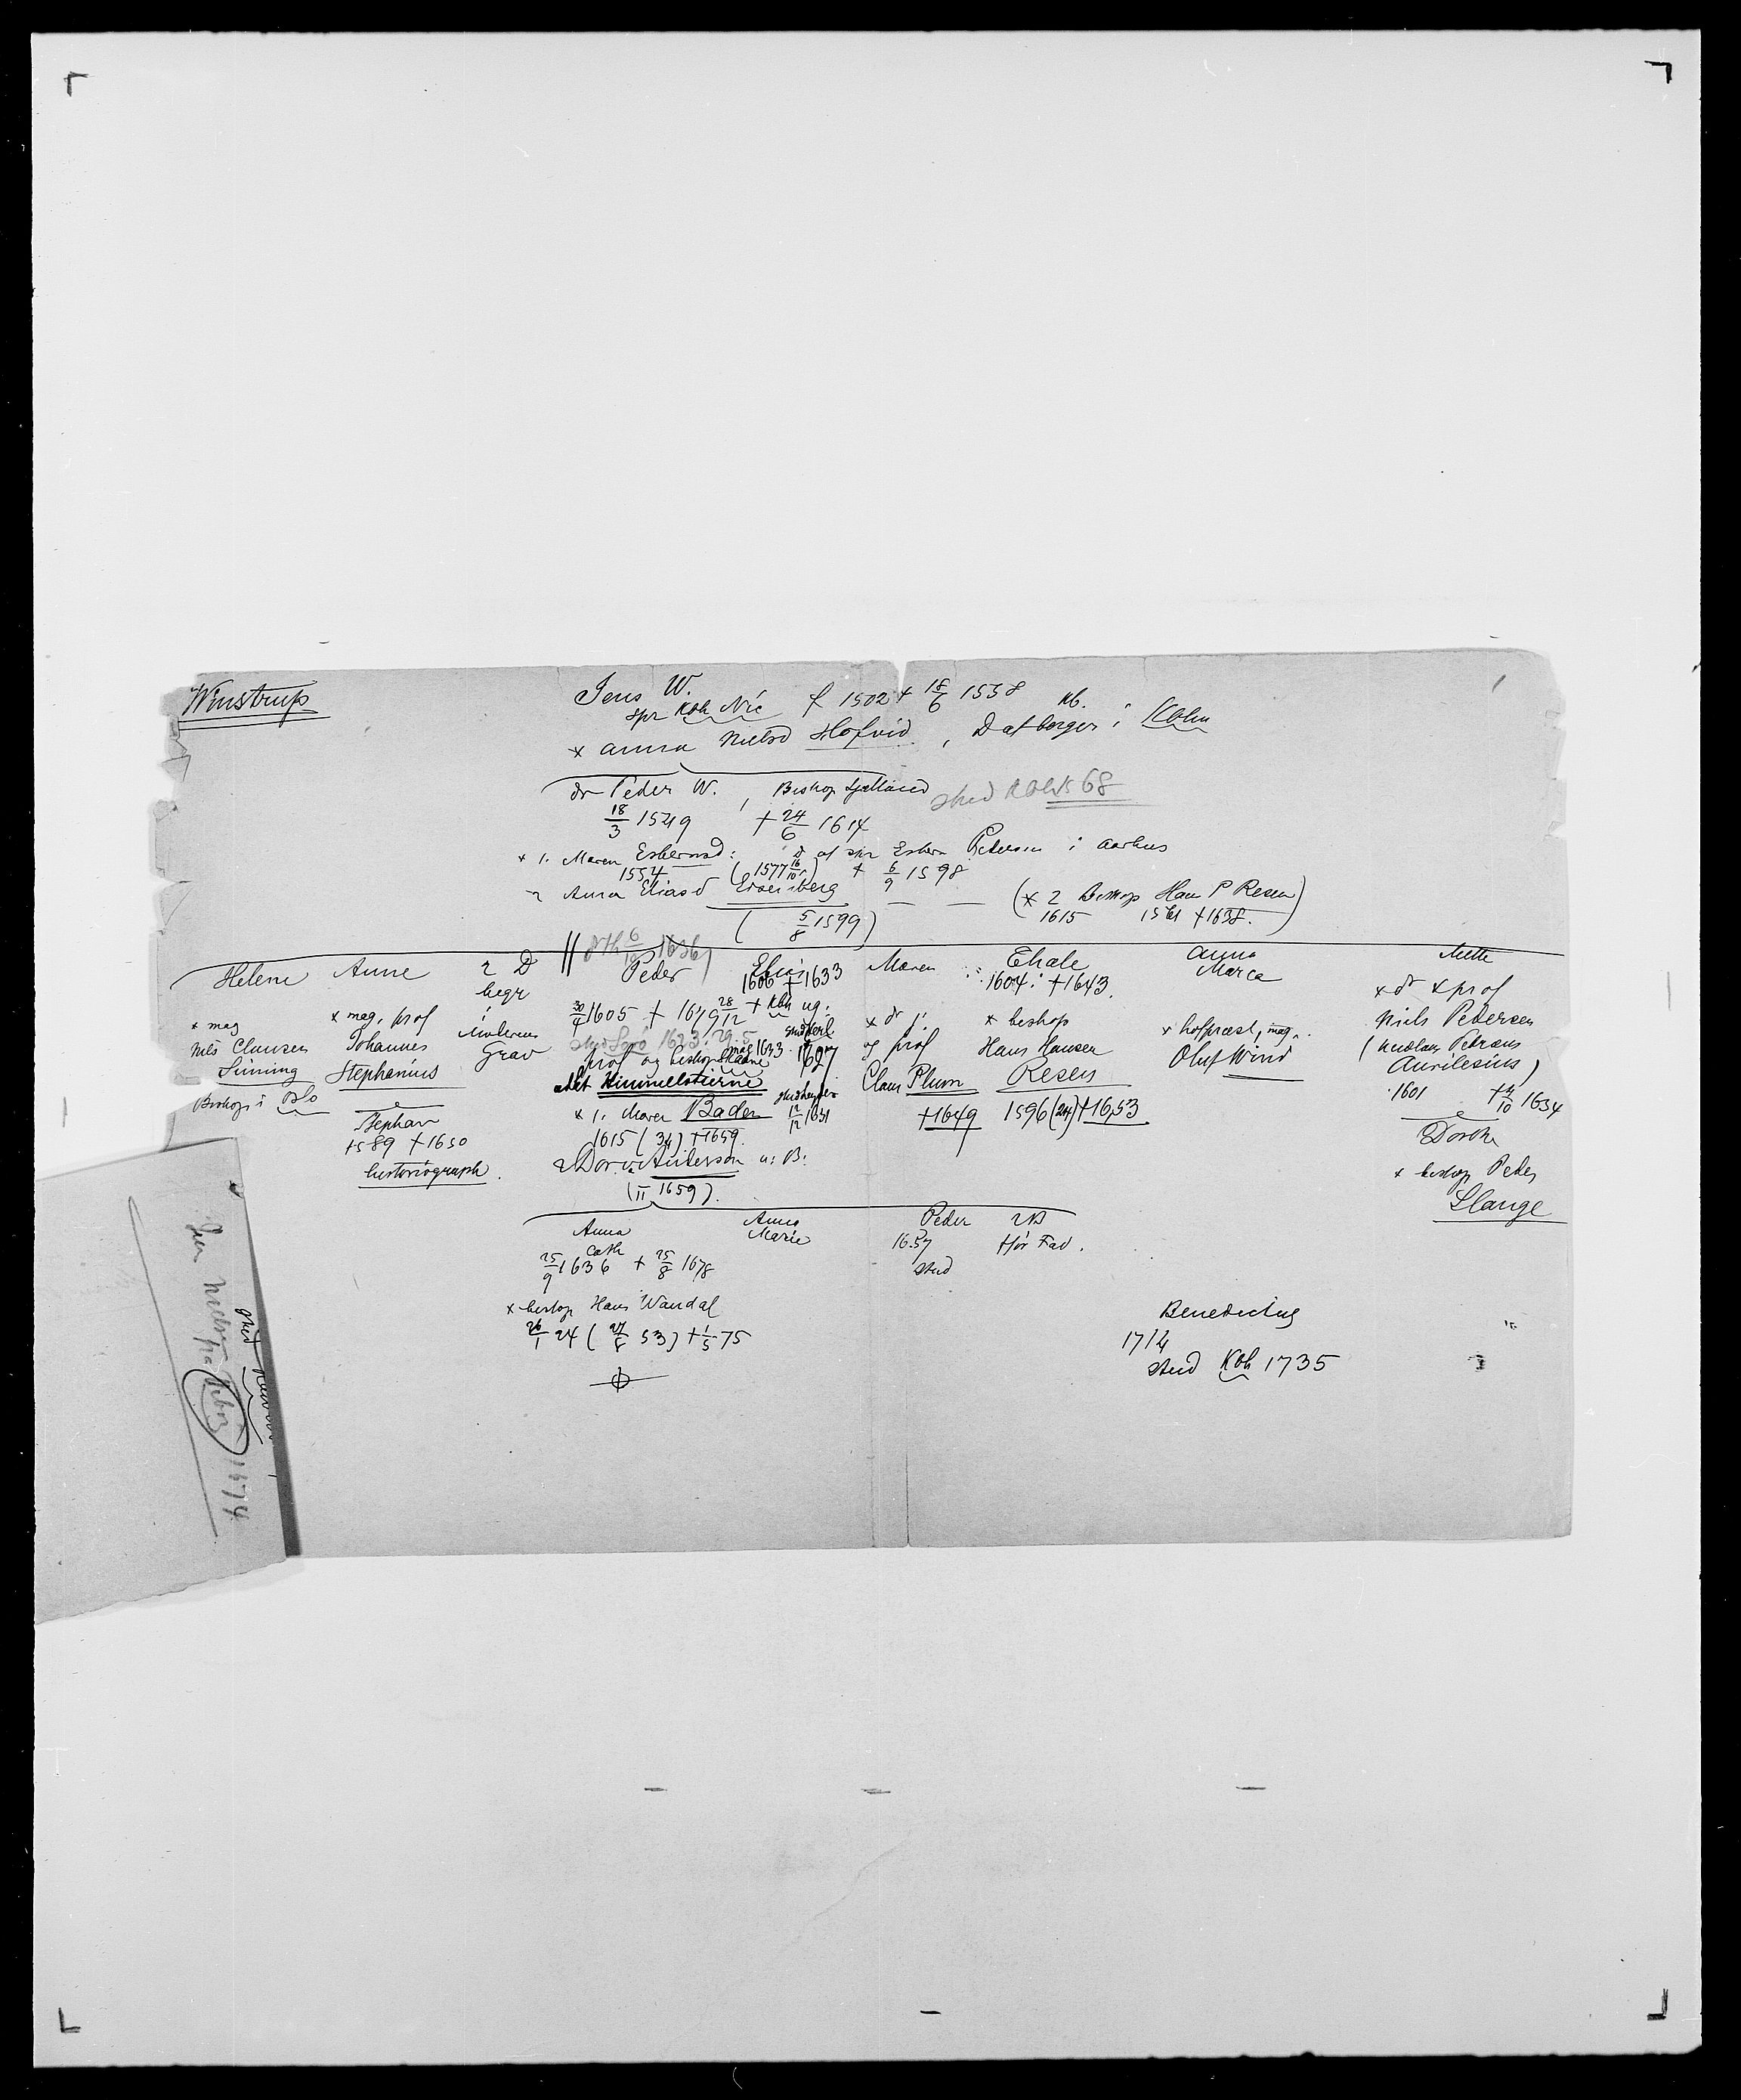 Winstrup
Jens W. f 1502 + 18/6 1558
spr Kbh Nic
x Anna Nielsd Hofvid, D af borger i Kbhn
dr Peder W., Biskop Sjælland stud Kbh 68
18/3 1549 + 24/6 1614
x 1. Maren Esbernsd: D af spr Esbern Pedersen i Aarhus
1554 (1577 16/10) + 6/9 1598
2 Anna Eliasd Eisenberg — — (x 2 Biskop Hans P Resen)
(5/8 1599) 1615 1561 + 1638.
Helene
x mag
Niels Clausen
Sinning
Biskop i Oslo
Anne
x mag. prof
Johannes
Stephanius
Stephan
1589 + 1650
historiograph.
2 D
begr
i
Grav
Peder
30/4 1605 + 1679 28/12
stud Sorø 1623. 29.5
prof og biskop Skaane
adlet Himmelstierne
x 1. Maren Baden
1615 (34) + 1659.
2 Dor. v. Andersen
(II 1659).
Elias
1606 + 1633
+ Kbh ug.
mag 1633 1627
12/12 1631
Maren
x dr j.
og prof
Claus Plum
+ 1649
Ehale
1604. + 1643.
x biskop
Hans Hansen
Resen
1596 (24) + 1653
Anna
Marca
x hofpræst, mag.
Oluf Wind
Mette
x dr x prof
Niels Pedersen
(Nicolaus Petræus
Aurilesius)
1601 + 4/10 1634
Dorthe
x biskop Peder
Slange
Anna
Cath
25/9 1636 + 25/8 1678
x biskop Hans Wandal
26/1 24 (27/8 53) + 1/5 75
Anna
Marie
Peder
1657
stud
2 B
+ før Fad.
Benedictus
1714
stud Kbh 1735
Jens Nielsen
fra
1674
stud